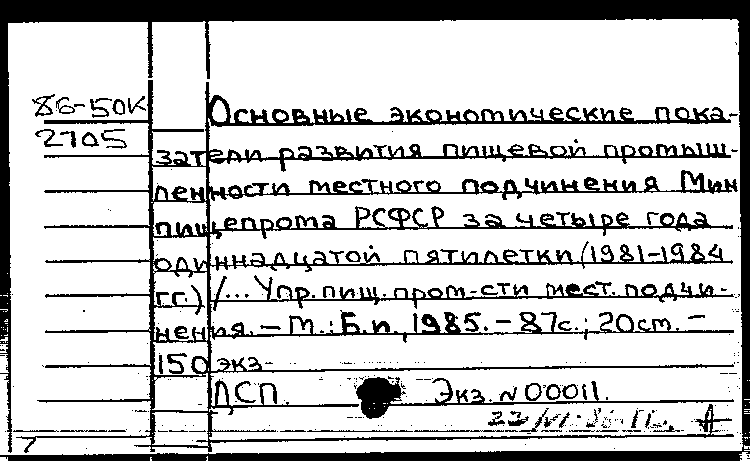 86-50К
2705
Основные экономические пока-
затели развития пищевой промыш-
ленности местного подчинения Мин
пищепрома РСФСР за четыре года
одиннадцатой пятилетки (1981-1984
гг.) /... Упр. пищ. пром-сти мест. подчи-
нения. – М.: Б.и., 1985. – 87с.; 20см. –
150 экз-
ДСП. Экз. N 00011.
7